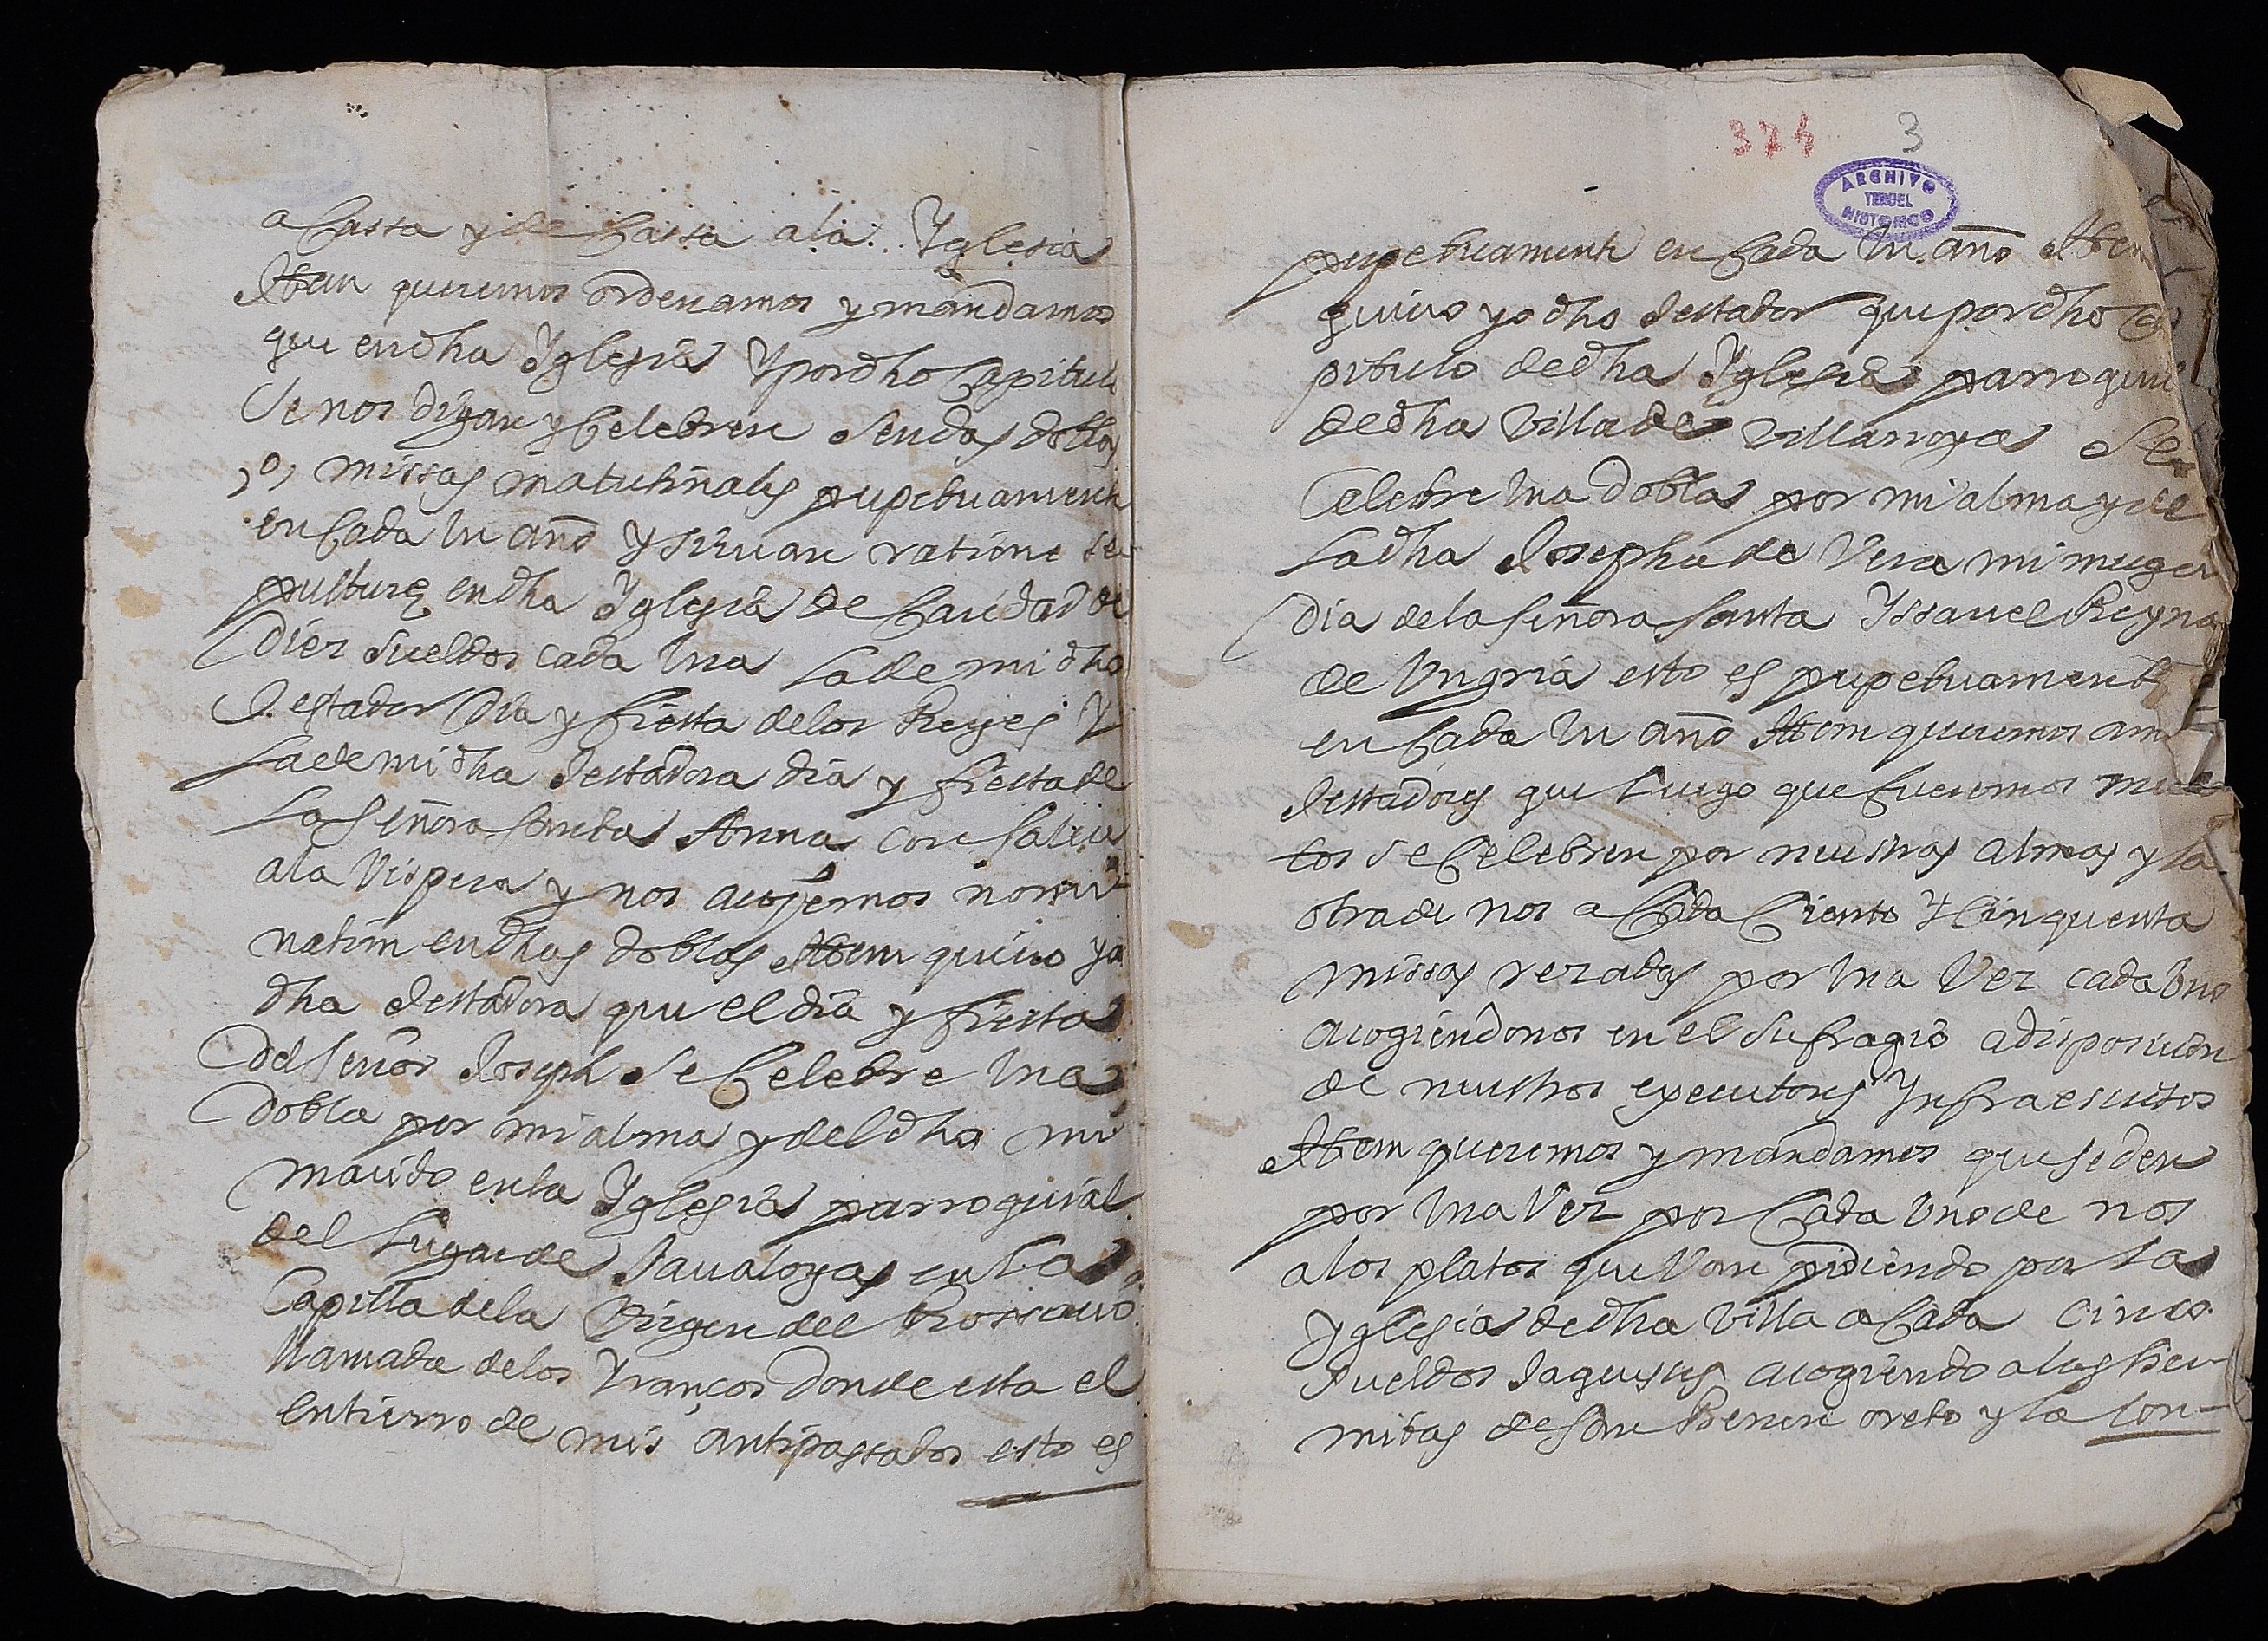 a Cassa y de Cassa a la Yglesia
Ittem queremos ordenamos y mandamos
que en dha Yglesia y por dho Capitulo
se nos digan y Celebren sendas doblas
,o, missas matutinales perpetuamente
en Cada un año y siruan ratione se
pulturę en dha Yglesia de Caridad de
diez sueldos cada una la de mi dho
Testador dia y fiesta de los Reyes y
la de mi dha Testadora dia y fiesta de
la señora Santa Anna con salue
a la Vispera y nos acojemos nomi
natim en dhas doblas Ittem quiero yo
dha Testadora que el dia y fiesta
del señor Joseph se Celebre una
dobla por mi alma y del dho mi
marido en la Yglesia parroquial
del lugar de Jaualoyas en la
Capilla de la Virgen del Rossario
llamada de los Yranços donde esta el
entierro de mis antipassados esto es
374 3
ARCHIVO
TERUEL
HISTORICO
perpetuamente en Cada un año Ittem
quiero yo dho Testador que por dho Ca
pitulo de dha Yglesia parroquial
de dha Villa de Villarroya se
Celebre una dobla por mi alma y de
la dha Josepha de Vera mi muger
dia de la señora santa Yssauel Reyna
de Ungria esto es perpetuamente
en Cada un año Ittem queremos ambos
Testadores que luego que fueremos muer
tos se Celebren por nuestras almas y la
otra de nos a Cada Ciento y Cinquenta
missas rezadas por una Vez cada uno
acogiendonos en el sufragio a disposicion
de nuestros executores Ynfraescritos
Ittem queremos y mandamos que se den
por una Vez por Cada uno de nos
a los platos que Van pidiendo por la
Yglesia de dha Villa a Cada cinco
sueldos Jaqueses acogiendo a las her
mitas de san Benon oreto y la Con-